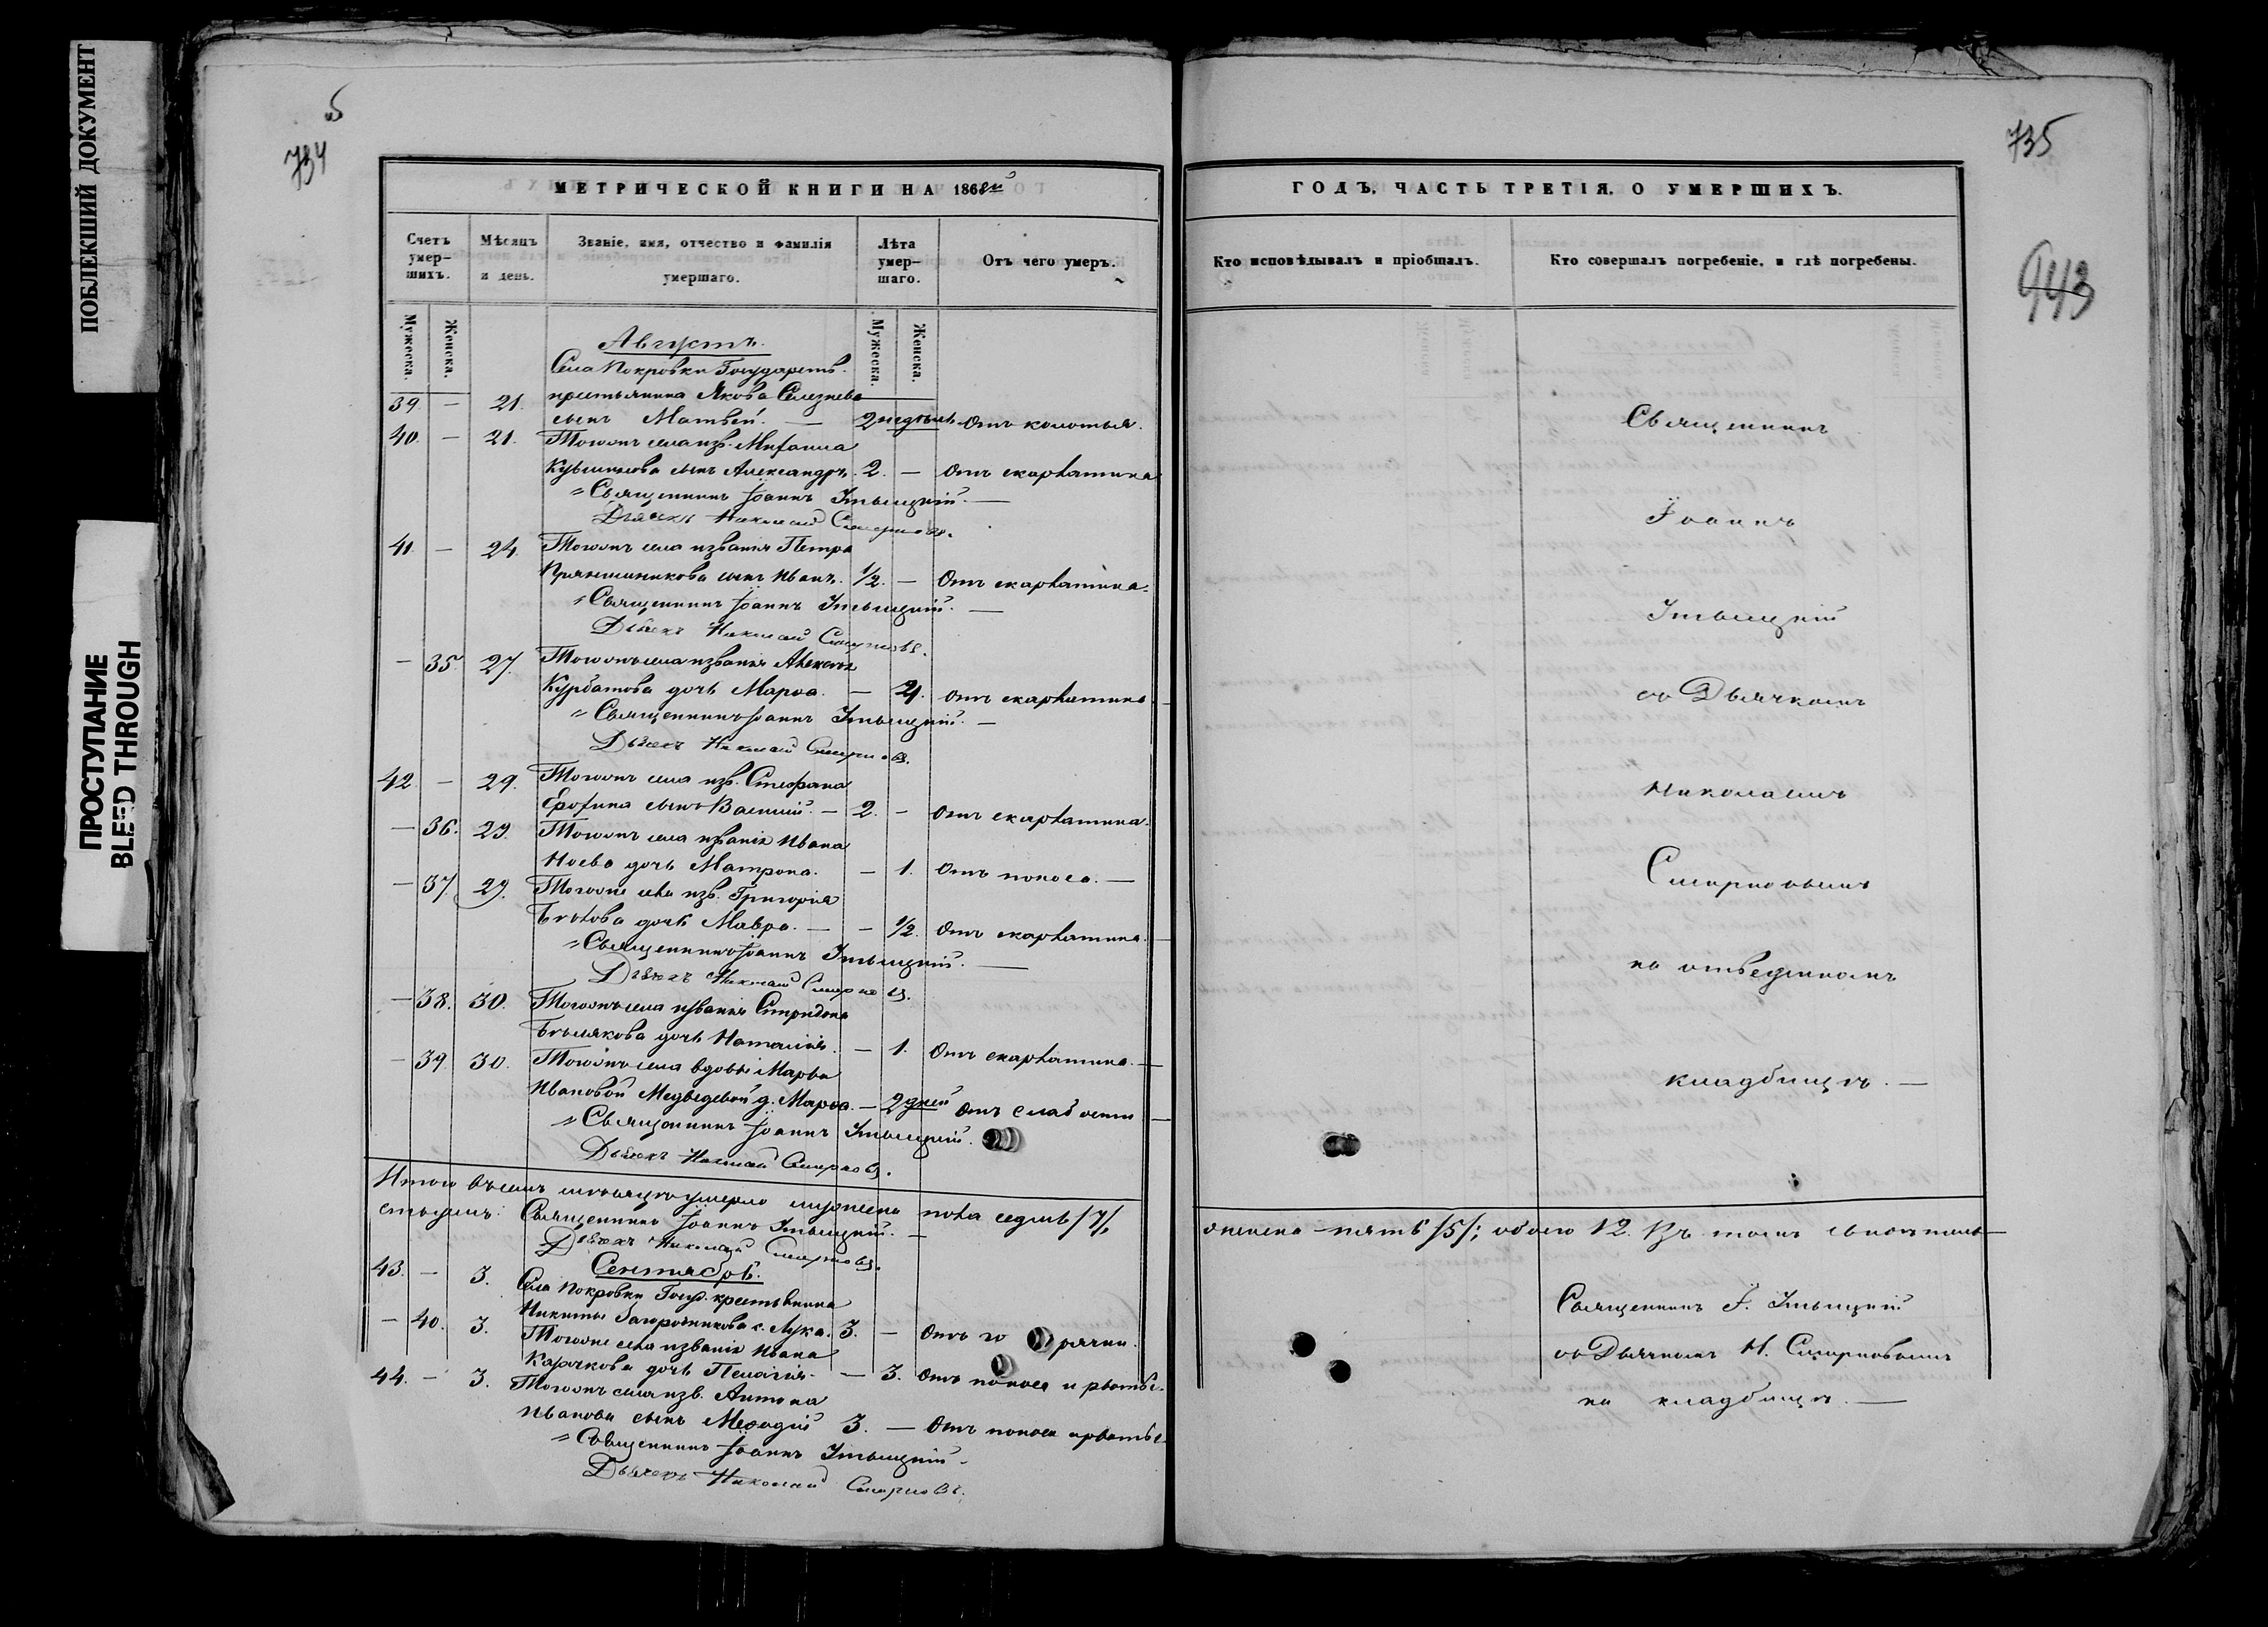 ПОБЛЕКШИЙ ДОКУМЕНТ
ПРОСТУПАНИЕ
BLEED THROUGH
5
734
МЕТРИЧЕСКОЙ КНИГИ НА 1868й
Счетъ умер-шихъ.
Мѣсяцъ и день.
Званіе, имя, отчество и фамилія умершаго.
Лѣта умер-шаго.
Отъ чего умеръ.
Мужеска. Женска. Мужеска. Женска.
Августъ.
Села Покровки Государств.
39. — 21. крестьянина Якова Селезнева
сынъ Матвей. — 2 недѣль Отъ колотья.
40. — 21. Тогожъ села изв. Михаила
сынъ Александръ. 2. — Отъ скарлатина
Священникъ Іоаннъ
Дьячекъ Николай Смирновъ.
41. — 24. Тогожъ села званія Петра
Прянишникова сынъ Иванъ. 1/2. — Отъ скарлатина.
Священникъ Іоаннъ
Дьячекъ Николай Смирновъ.
— 35. 27. Тогожъ села званія Алексѣя
Курбатова дочь Марѳа. — Отъ скарлатины.
Священникъ Іоаннъ
Дьячекъ Николай Смирновъ.
42. — 29. Тогожъ села изв. Стефана
Ерофина сынъ Василій. — 2. — Отъ скарлатина.
— 36. 29. Тогожъ села званія Ивана
Ноева дочь Матрона. — 1. Отъ поноса. —
— 37. 29. Тогоже села изв. Григорія
Бѣлова дочь Мавра. — — 1/2. Отъ скарлатина. —
Священникъ Іоаннъ
Дьячекъ Николай Смирновъ.
— 38. 30. Тогожъ села званія Спиридона
Бѣлякова дочь Наталія. — 1. Отъ скарлатина. —
— 39. 30. Тогожъ села вдовы Марѳы
Ивановой Медведевой д. Марѳа. — 2 дней Отъ слабости —
Священникъ Іоаннъ
Дьячекъ Николай Смирновъ.
Итого въ семъ мѣсяцѣ умерло мужеска пола седмь /7/,
Священникъ Іоаннъ
Дьячекъ Николай Смирновъ.
Сентябрь.
43. — 3. Села Покровки Госуд. крестьянина
Никиты Загородникова с. Лука. 3. — Отъ горячки.
— 40. 3. Тогоже села званія Ивана
Карачкова дочь Пелагія. — 3. Отъ поноса и рвоты.
44. — 3. Тогожъ села изв. Антона
Иванова сынъ Меѳодій 3. — Отъ поноса и рвоты.
Священникъ Іоаннъ
Дьячекъ Николай Смирновъ.
735
943
ГОДЪ, ЧАСТЬ ТРЕТІЯ, О УМЕРШИХЪ.
Кто исповѣдывалъ и пріобщалъ.
Кто совершалъ погребеніе, и гдѣ погребены.
Священникъ
Іоаннъ
съ Дьячкомъ
Николаемъ
Смирновымъ
на отведенномъ
кладбищѣ. —
женска — пять /5/; обоего 12. Въ томъ свидѣтель-
Священникъ І.
съ Дьячкомъ Н. Смирновымъ
на кладбищѣ. —